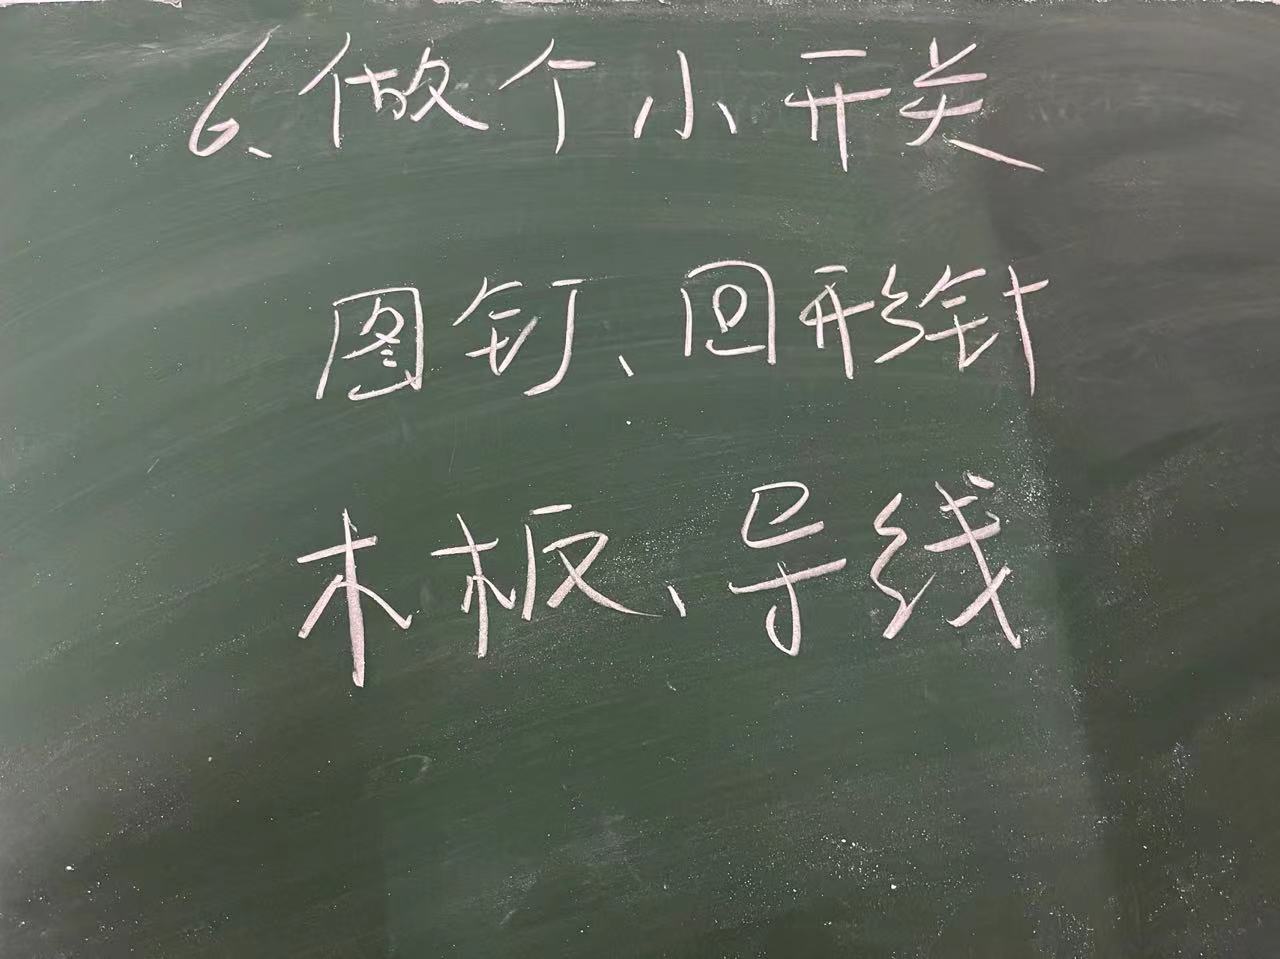 6、做个小开关
图钉、回形针
木板、导线